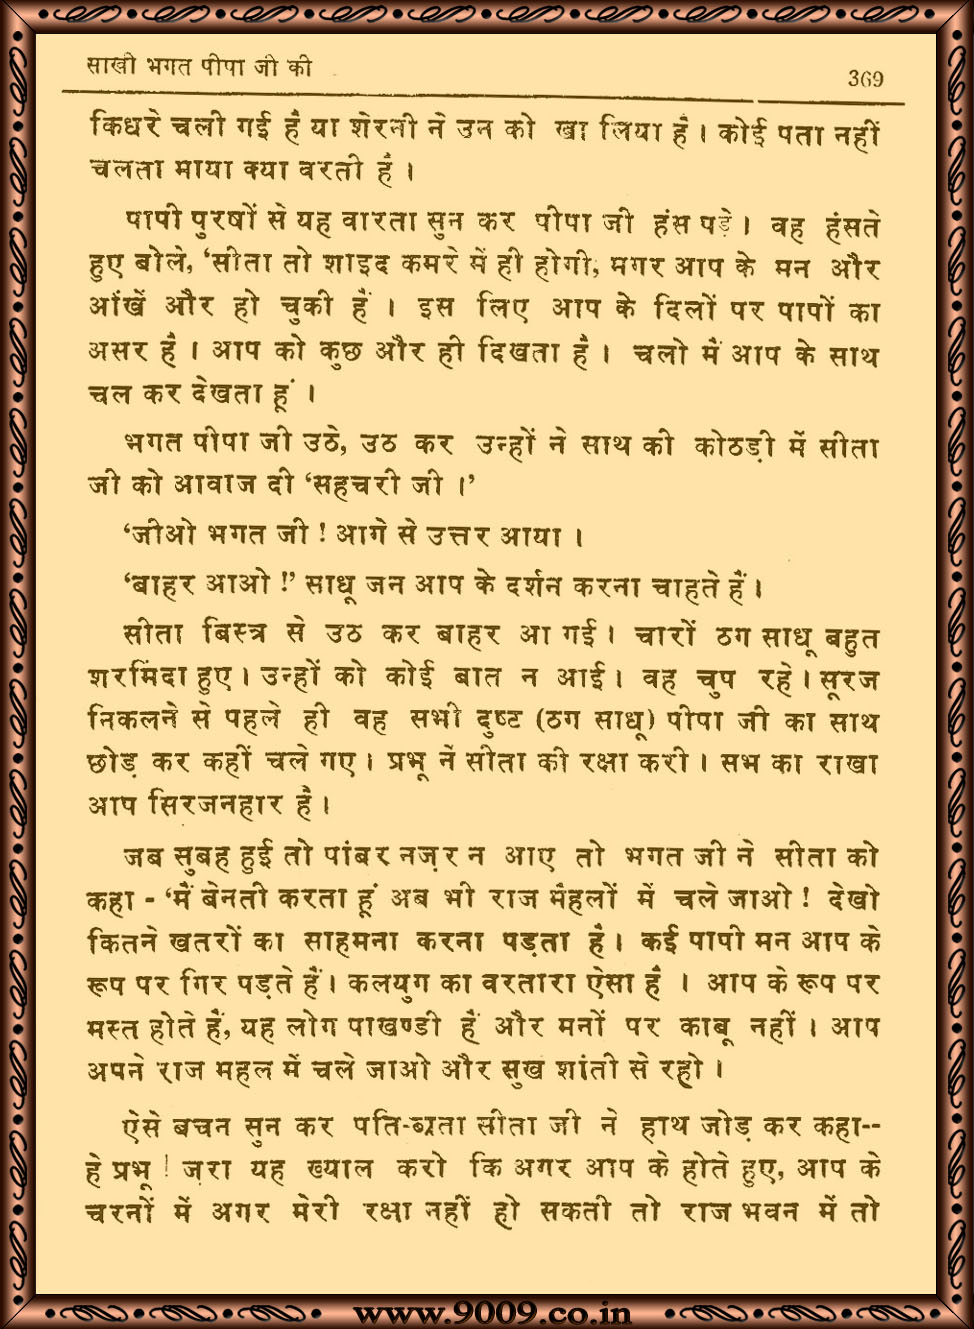 साखी भगत पीपा जी की
369
किधरे चली गई है या शेरनी ने उन को खा लिया है । कोई पता नहीं
चलता माया क्या वरती है ।
पापी पुरषों से यह वारता सुन कर पीपा जी हंस पड़े । वह हंसते
हुए बोले, ‘सीता तो शाइद कमरे में ही होगी, मगर आप के मन और
आंखें और हो चुकी हैं । इस लिए आप के दिलों पर पापों का
असर है । आप को कुछ और ही दिखता है । चलो मैं आप के साथ
चल कर देखता हूं ।
भगत पीपा जी उठे, उठ कर उन्हों ने साथ की कोठड़ी में सीता
जी को आवाज दी ‘सहचरी जी ।’
‘जीओ भगत जी ! आगे से उत्तर आया ।
‘बाहर आओ !’ साधू जन आप के दर्शन करना चाहते हैं ।
सीता बिस्त्र से उठ कर बाहर आ गई । चारों ठग साधू बहुत
शरमिंदा हुए । उन्हों को कोई बात न आई । वह चुप रहे । सूरज
निकलने से पहले ही वह सभी दुष्ट (ठग साधू) पीपा जी का साथ
छोड़ कर कहीं चले गए । प्रभू नें सीता की रक्षा करी । सभ का राखा
आप सिरजनहार है ।
जब सुबह हुई तो पांबर नज़र न आए तो भगत जी ने सीता को
कहा - ‘मैं बेनती करता हूं अब भी राज मैहलों में चले जाओ ! देखो
कितने खतरों का साहमना करना पड़ता है । कई पापी मन आप के
रूप पर गिर पड़ते हैं । कलयुग का वरतारा ऐसा है । आप के रूप पर
मस्त होते हैं, यह लोग पाखण्डी हैं और मनों पर काबू नहीं । आप
अपने राज महल में चले जाओ और सुख शांती से रहो ।
ऐसे बचन सुन कर पति-ब्रता सीता जी ने हाथ जोड़ कर कहा--
हे प्रभू ! ज़रा यह ख्याल करो कि अगर आप के होते हुए, आप के
चरनों में अगर मेरी रक्षा नहीं हो सकती तो राज भवन में तो
www.9009.co.in